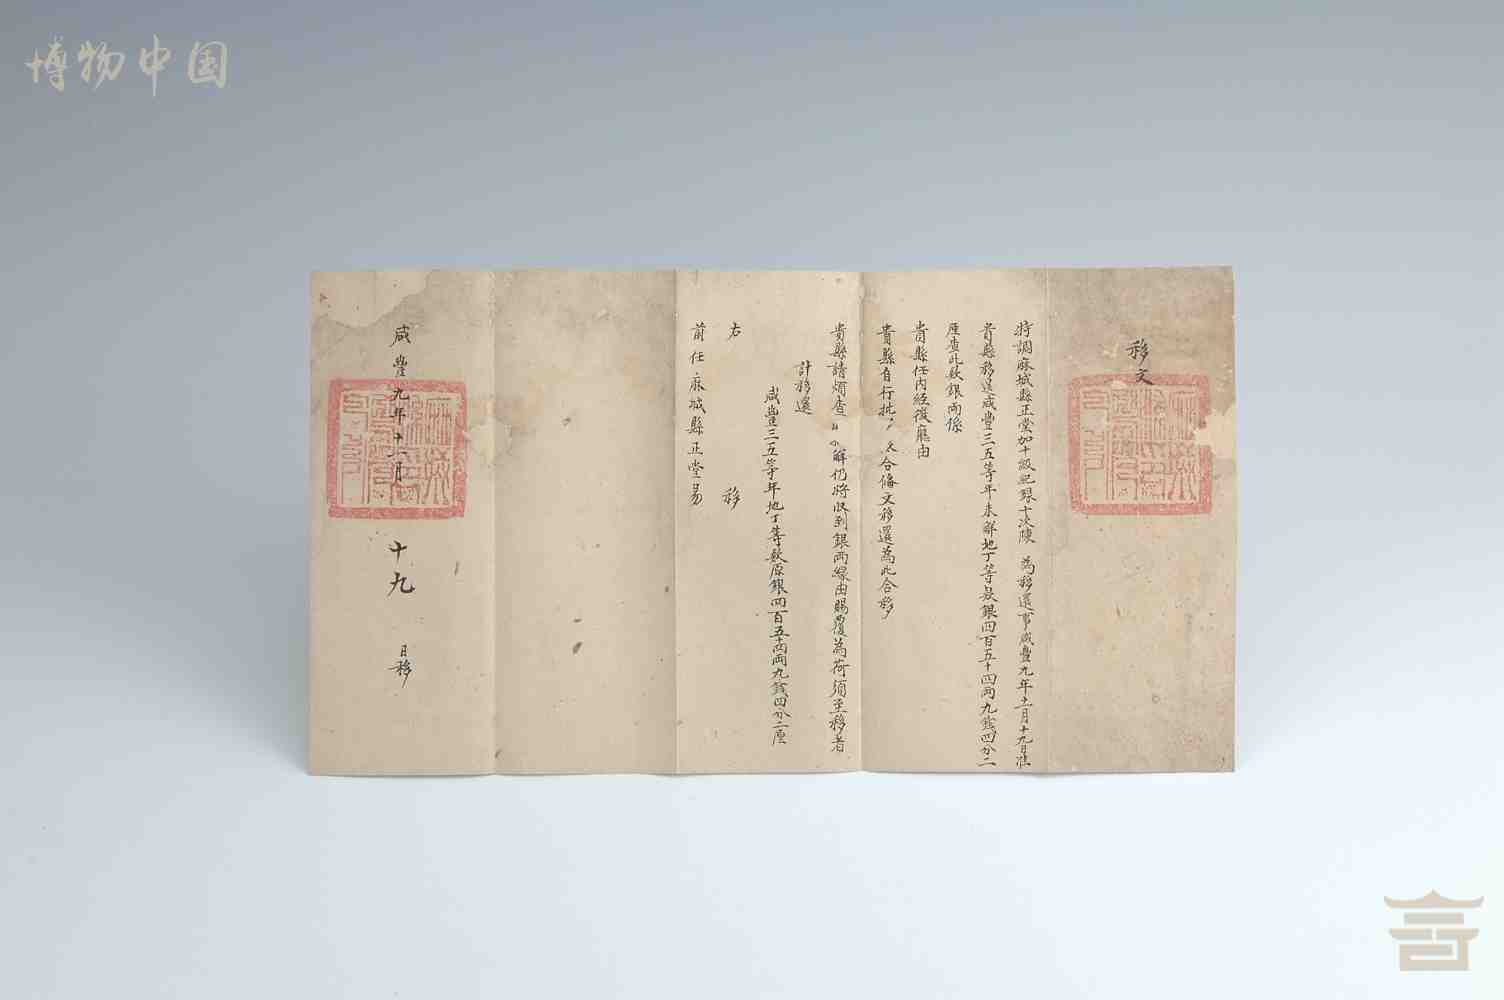 博物中国
移文
特調麻城縣正堂加十級紀録十次陳 為移還事咸豐九年十一月十九日准
貴縣移送咸豐三五等年未解地丁等款銀四百五十四両九錢四分二
厘查此欵銀両係
貴縣任内經徵應由
貴縣自行批 合偹文移還為此合移
貴縣請煩查 解仍将收到銀両緣由賜覆為荷須至移者
計移還
咸豐三五等年地丁等欵原銀四百五十四両九錢四分二厘
右 移
前任麻城縣正堂易
咸豐九年十一月 十九 日移